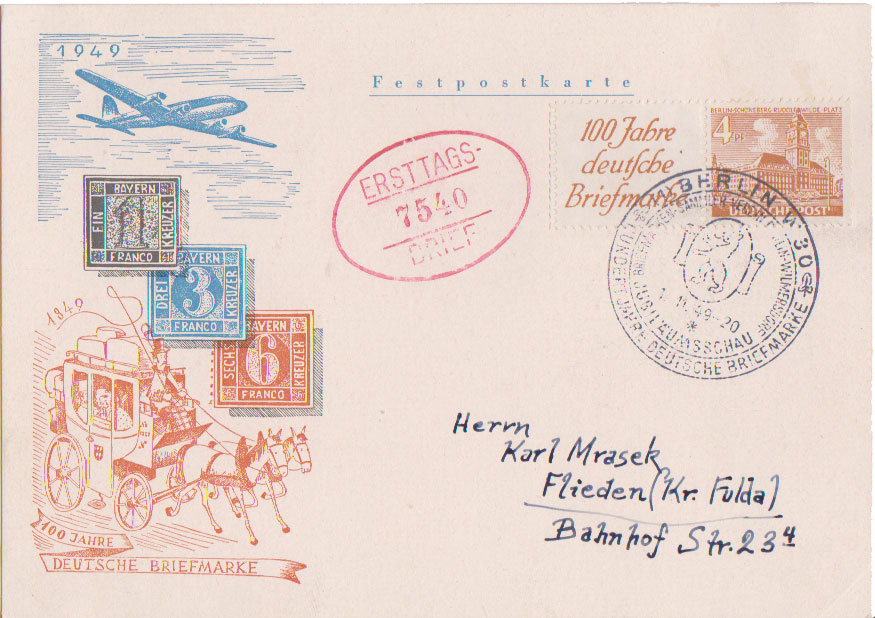 1949
Festpostkarte
100 Jahre
deutsche
Briefmarke
BERLIN-SCHÖNEBERG·RUDOLF-WILDE-PLATZ
4 PF
DEUTSCHE POST
ERSTTAGS-
7540
BRIEF
BERLIN W 30
HUNDERT JAHRE DEUTSCHE BRIEFMARKE
JUBILÄUMSSCHAU
11.49-20
BAYERN
EIN
1
KREUZER
FRANCO
BAYERN
DREI
3
KREUZER
FRANCO
BAYERN
SECHS
6
KREUZER
FRANCO
1849
Herrn
Karl Mrasek
Flieden (Kr. Fulda)
Bahnhof Str. 23 4
100 JAHRE
DEUTSCHE BRIEFMARKE